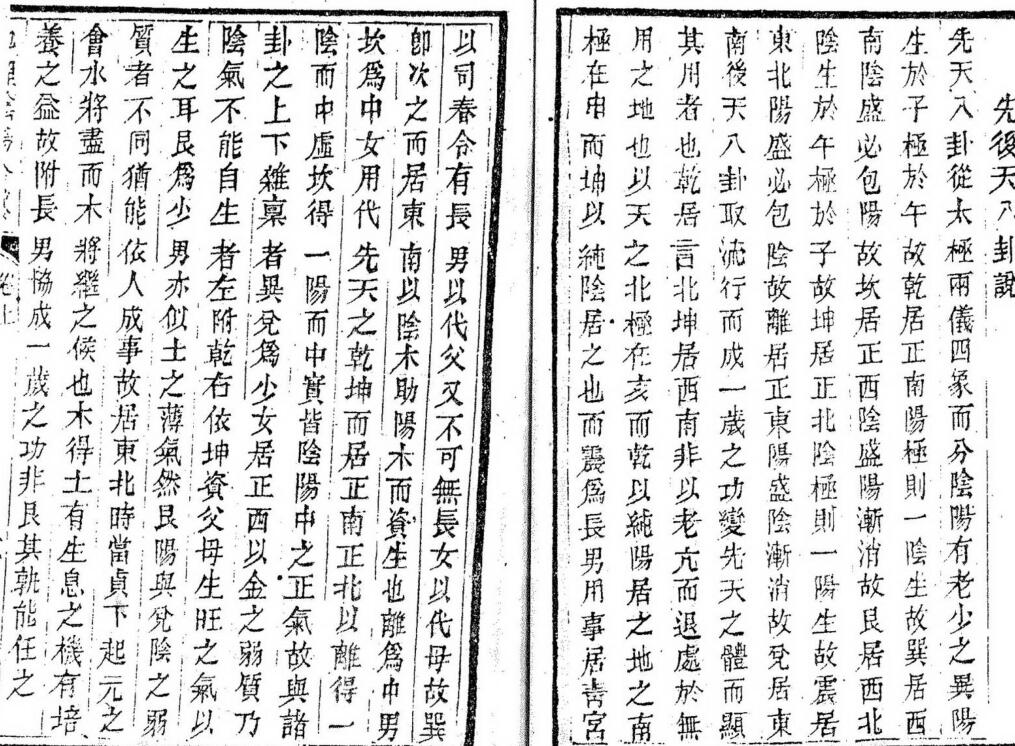 先後天八卦說
先天八卦從太極兩儀四象而分陰陽有老少之異陽
生於子極於午故乾居正南陽極則一陰生故巽居西
南陰盛必包陽故坎居正西陰盛陽漸消故艮居西北
陰生於午極於子故坤居正北陰極則一陽生故震居
東北陽盛必包陰故離居正東陽盛陰漸消故兌居東
南後天八卦取流行而成一歲之功變先天之體而顯
其用者也乾居言北坤居西南非以老亢而退處於無
用之地也以天之北極在亥而乾以純陽居之地之南
極在申而坤以純陰居之也而震爲長男用事居靑宮
以司春令有長男以代父又不可無長女以代母故巽
卽次之而居東南以陰木助陽木而資生也離爲中男
坎爲中女用代先天之乾坤而居正南正北以離得一
陰而中虛坎得一陽而中實皆陰陽中之正氣故與諸
卦之上下雜稟者異兌爲少女居正西以金之弱質乃
陰氣不能自生者左附乾右依坤資父母生旺之氣以
生之耳艮爲少男亦似土之薄氣然艮陽與兌陰之弱
質者不同猶能依人成事故居東北時當貞下起元之
會水將盡而木將繼之候也木得土有生息之機有培
養之益故附長男協成一歲之功非艮其孰能任之
卷上